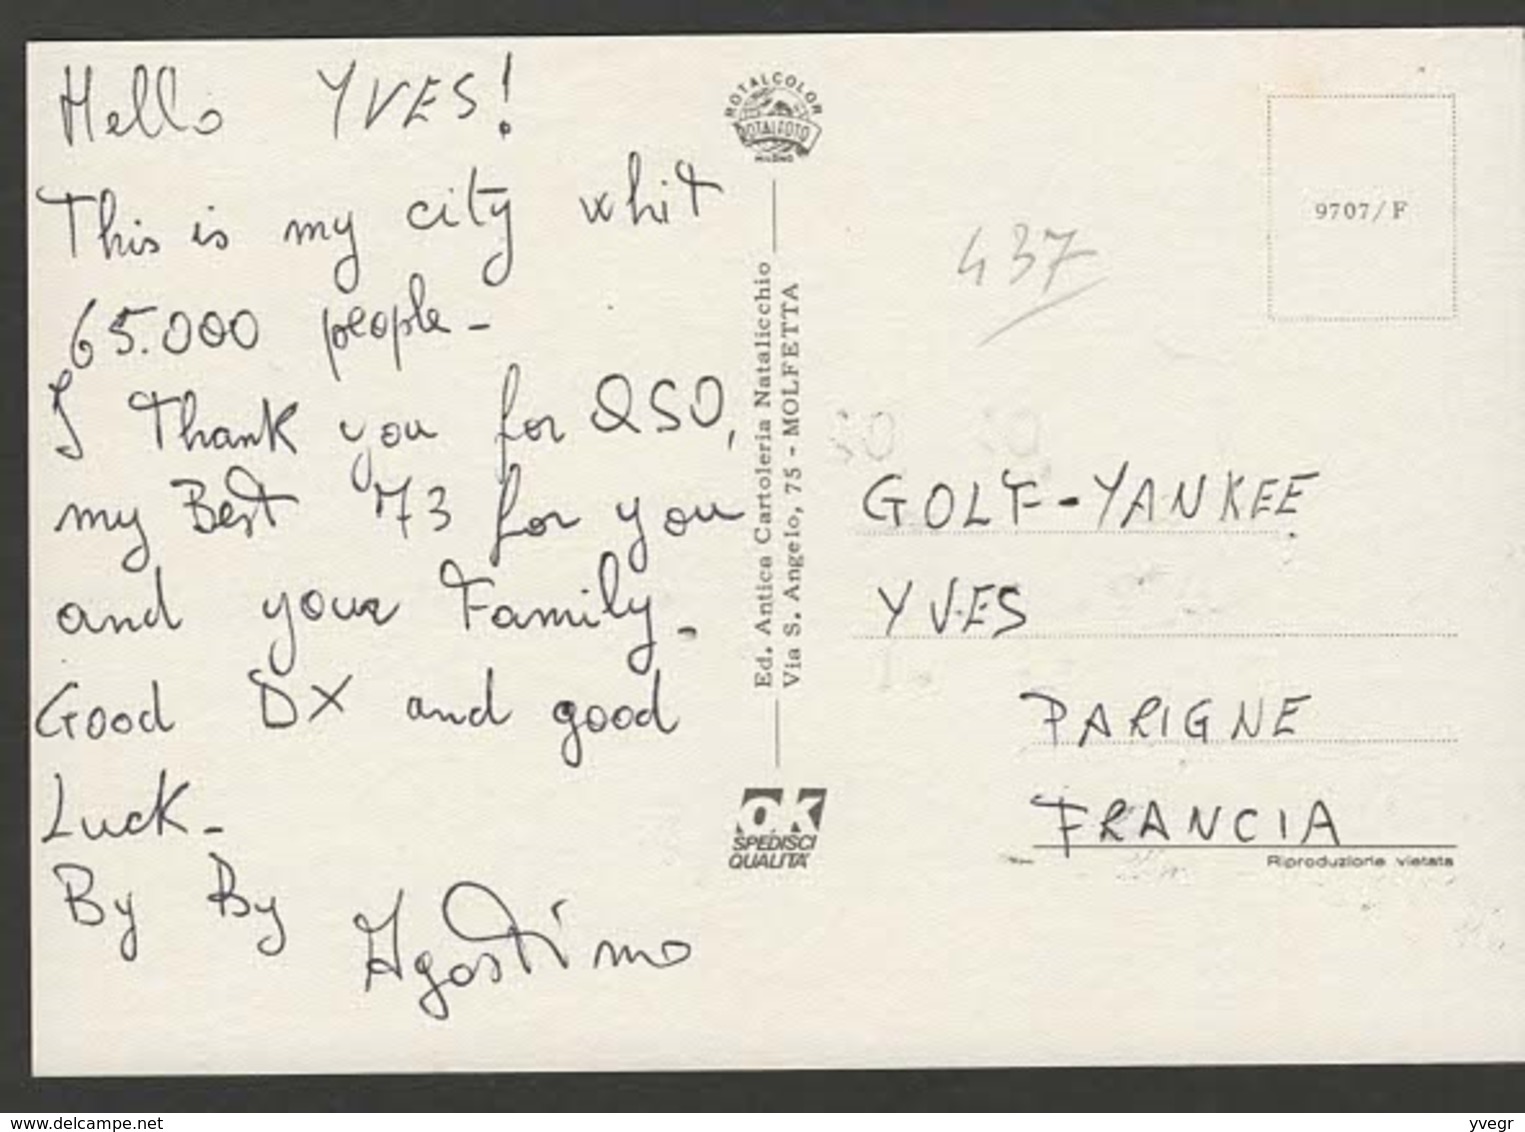 Hello YVES!
This is my city whit
65.000 people -
I Thank you for QSO,
my Best 73 for you
and your Family -
Good DX and good
Luck -
By By
Agostino
ROTALCOLOR
ROTALFOTO
MILANO
Ed. Antica Cartoleria Natalicchio
Via S. Angelo, 75 - MOLFETTA
OK
SPEDISCI
QUALITA'
9707/F
437
GOLF-YANKEE
YVES
PARIGNE
FRANCIA
Riproduzione vietata
www.delcampe.net
yvegr